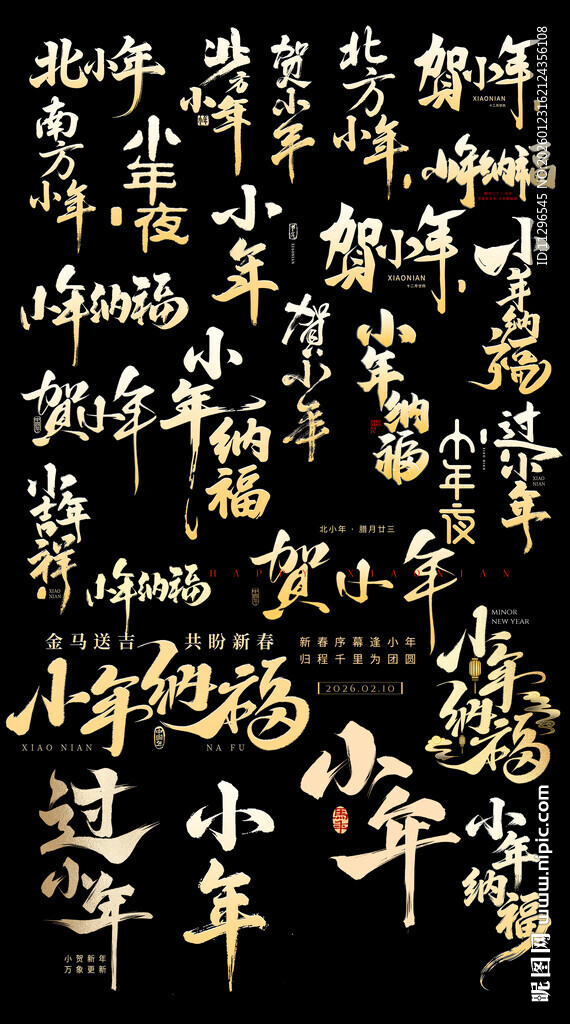 北小年
南方小年
小年夜
北方小年
贺小年
北方小年
贺小年
XIAONIAN
小年纳福
小年
XIAONIAN
贺小年
XIAONIAN
小年纳福
小年纳福
贺小年
小年纳福
贺小年
小年纳福
小年夜
过小年
XIAO
NIAN
小年吉祥
XIAO
NIAN
小年纳福
北小年·腊月廿三
贺小年
HAPPY XIAONIAN
金马送吉 共盼新春
小年纳福
XIAO NIAN NA FU
新春序幕逢小年
归程千里为团圆
2026.02.10
MINOR
NEW YEAR
小年纳福
过小年
小贺新年
万象更新
小年
小年
小年纳福
ID:11296545 NO:20260123162124356108
昵图网 www.nipic.com